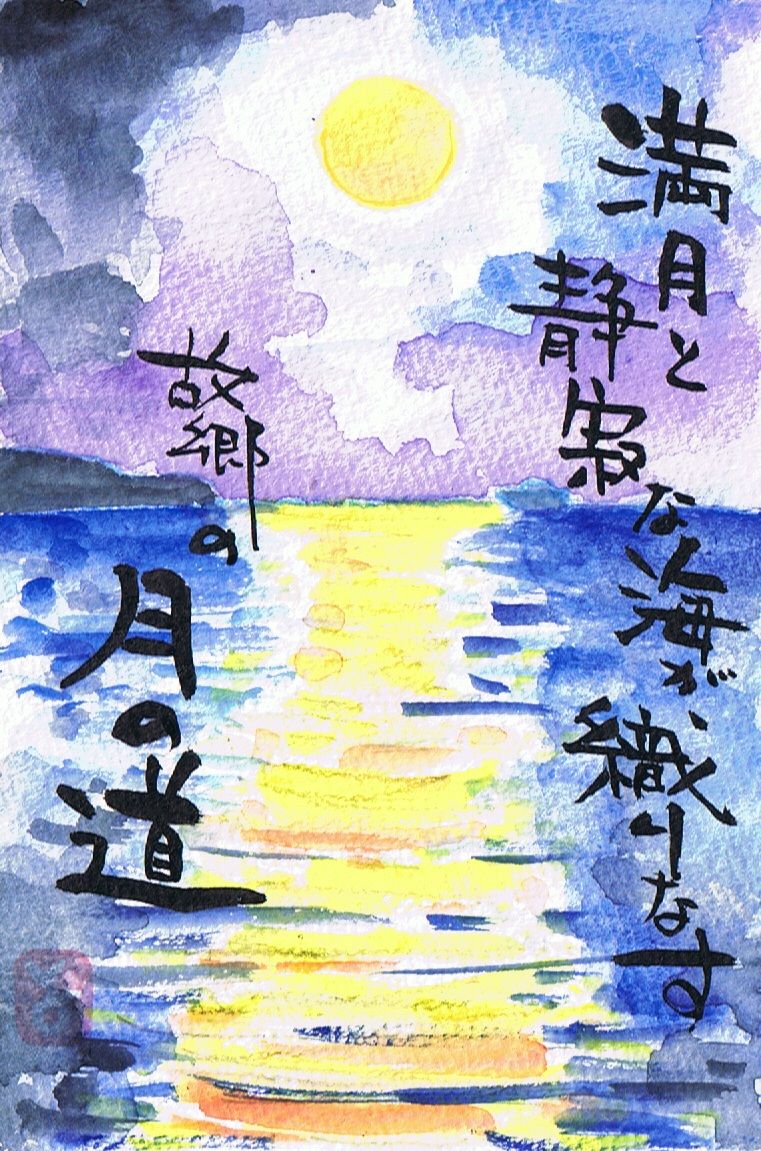 満月と
静寂な海が、
織りなす
故郷の
月の道